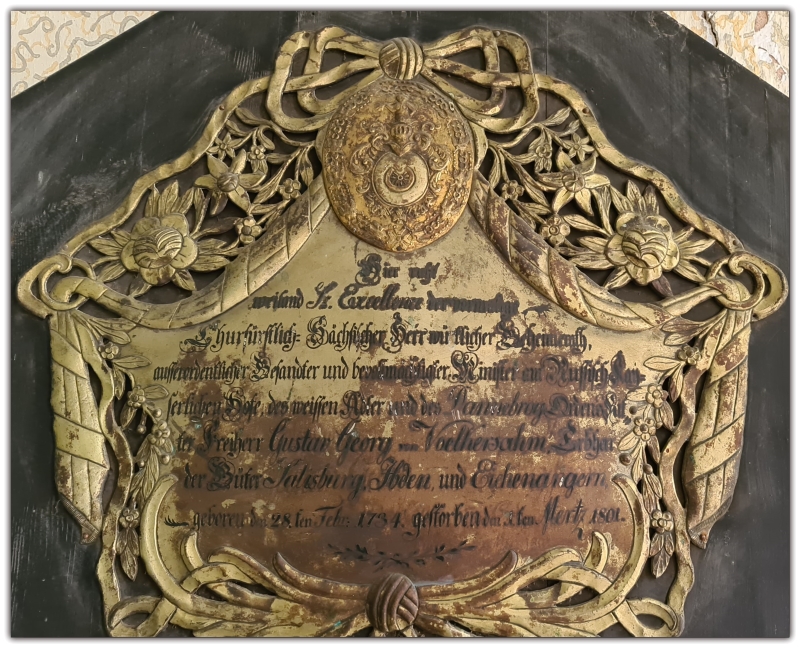 Hier ruht
weiland Sr. Excellenz der
Churfürstlich-Sächsischer Herr würklicher Geheimerath,
ausserordentlicher Gesandter und bevolmächtigter Minister am Russisch Kay-
serlichen Hofe, des weissen Adler und des Dannebrog Ordens Rit-
ter Freiherr Gustav Georg von Voelkersahm, Erbherr
der Güter Salisburg, Iden, und Eichenangern,
geboren den 28.ten Febr. 1734. gestorben den ten Mertz 1801.